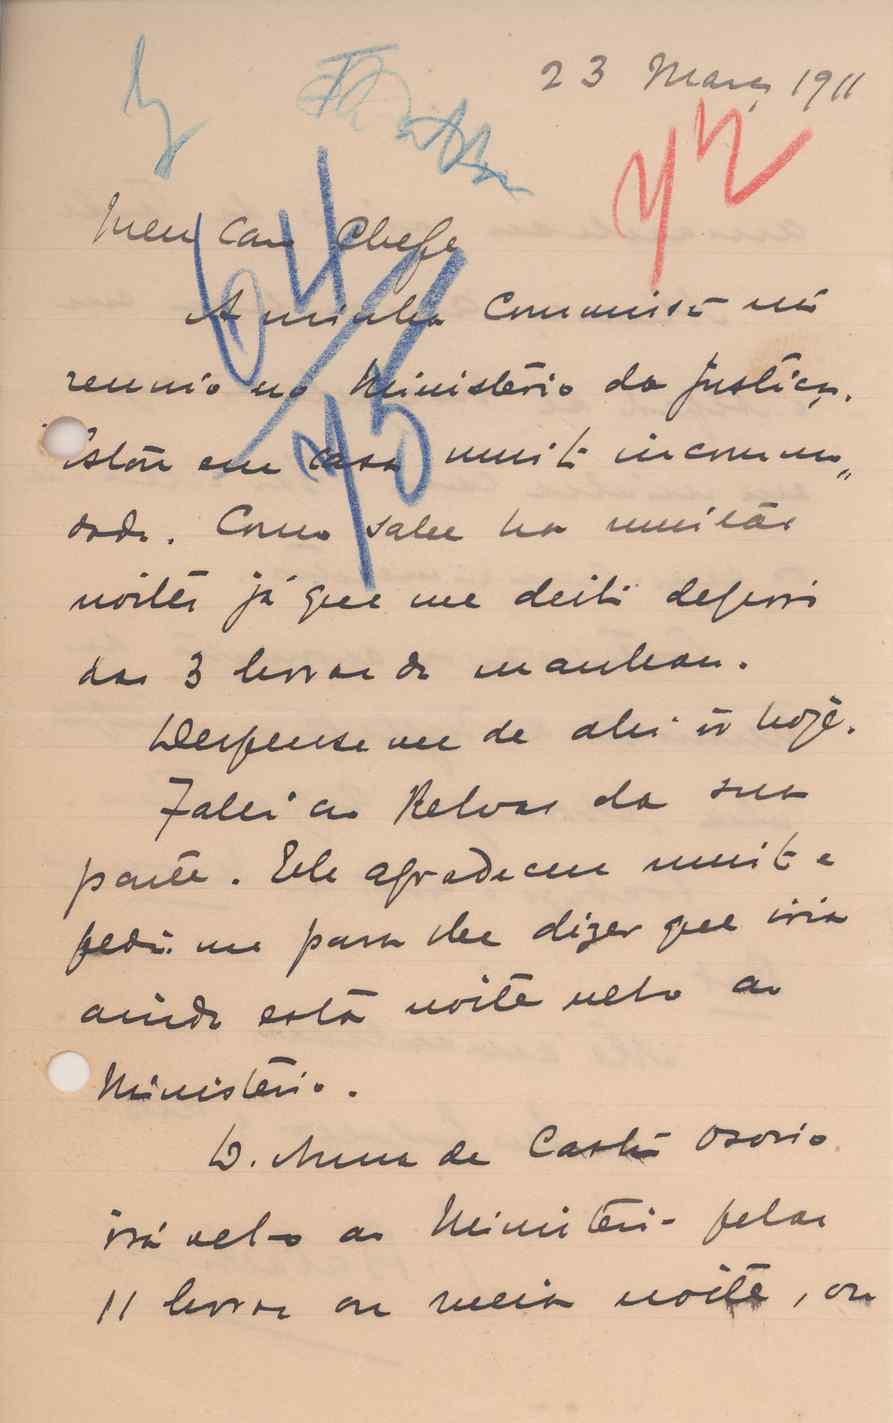 23 Março 1911
64
42
Meu caro Chefe
A minha Commissão não
reunio no Ministério da Justiça.
Estou em casa muito incommo„
dado. Como sabe ha muitas
noites já que me deito depois
das 3 horas da manhan.
Despense me de ahi ir hoje.
Falei ao Relvas da sua
parte. Elle agradeceu muito e
pediu me para lhe dizer que iria
ainda esta noite vel-o ao
Ministério.
D. Anna de Castro Osorio
irá vel-o ao Ministerio pelas
11 horas ou meia noite, ou